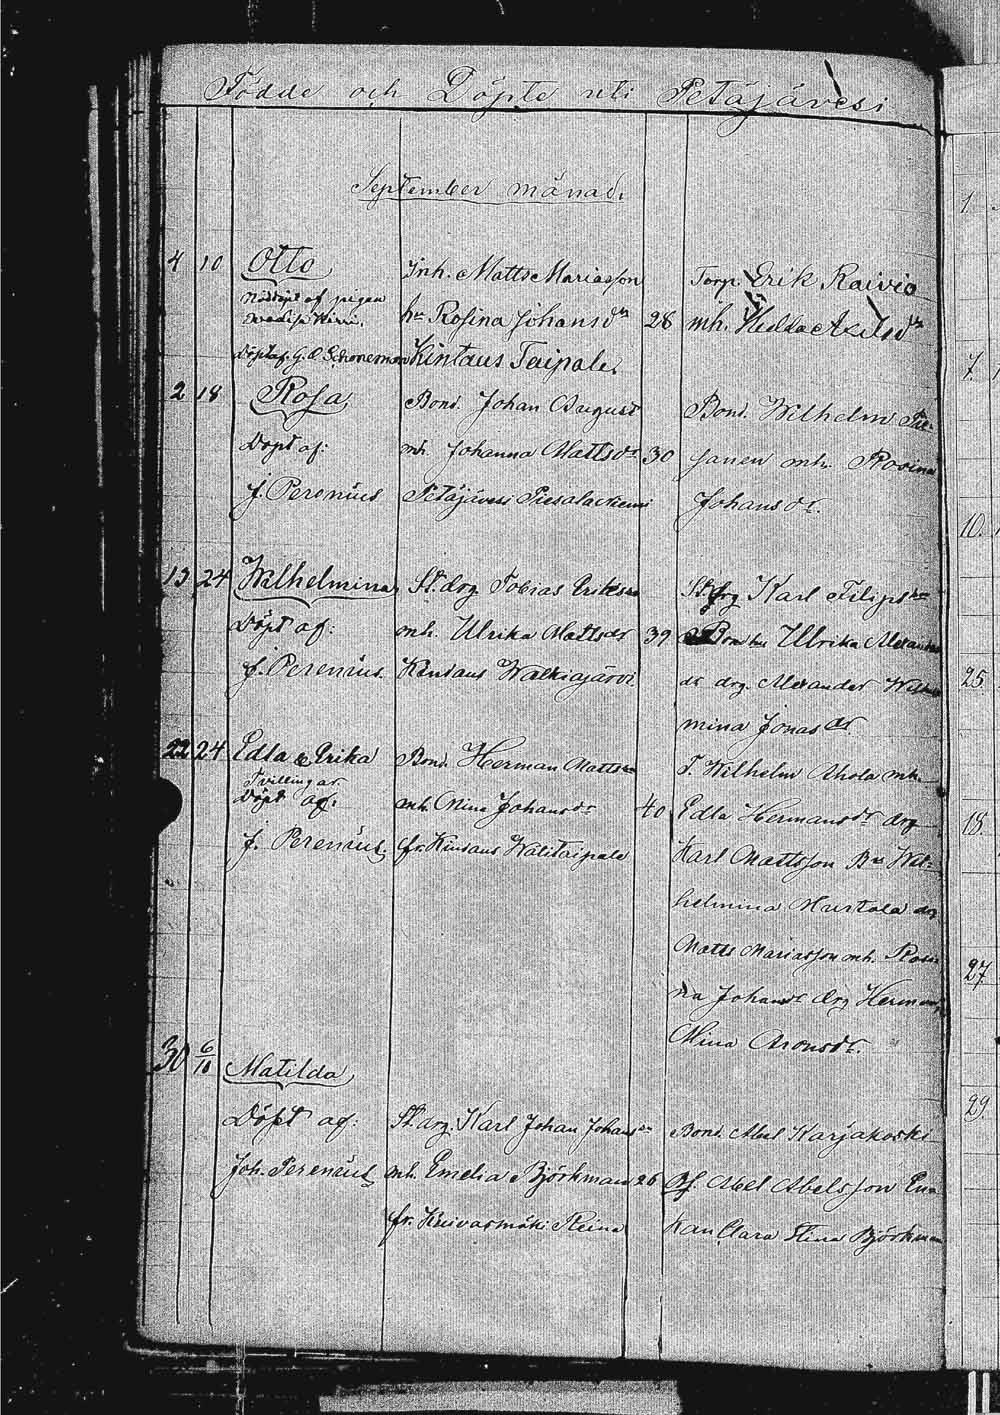 Födde och Döpte uti Petäjävesi
September månad.
4 10 Otto Inh. Matts Mariasson Torp. Erik Raivio
Nöddöpt af pigan
hu Rosina Johansdr 28 mh. Hedda Axelsdr
Döpt af G. A. Schoneman Kintaus Taipale.
2 18 Rosa Bond. Johan August Bond. Wilhelm Pii-
Döpt af: mh. Johanna Mattsdr 30 sanen mh. Rosina
J. Perenius Petäjävesi Piesalankiemi Johansdr.
13 24 Wilhelmina St.drg Tobias Eriksson St.drg Karl Filipsson
Döpt af: mh. Ulrika Mattsdr 39 Ulrika Alexanders
J. Perenius. Kintaus Walkiajärvi dr drg. Alexander Wilhel
mina Jonasdr
22 24 Edla & Erika Bond. Herman Mattsson T. Wilhelm Ahola mh.
Tvillingar
Döpt af: mh. Mina Johansdr 40 Edla Hermansdr drg
J. Perenius. fr. Kintaus Wälitaipale Karl Mattsson Bu Wil-
helmina Murtola drg
Matts Mariasson mh. Rosi
na Johansdr drg Herman
Mina Aronsdr.
30 6/10 Matilda
Döpt af: St.drg. Karl Johan Johansson Bond. Abel Karjakoski
Joh. Perenius mh. Emelia Björkman 26 Gf. Abel Abelsson En
fr. Kuivasmäki Reina kan Clara Stina Björkman
1.
7.
10.
25.
18.
27.
29.